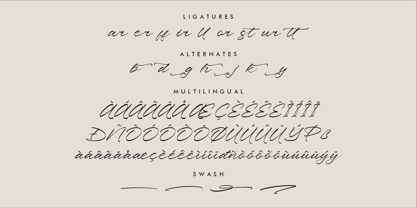 LIGATURES
ar er ff ir ll or st ur tt
ALTERNATES
b d g h j k y
MULTILINGUAL
ÀÁÂÃÄÅÆÇÈÉÊËÌÍÎÏ
ÐÑÒÓÔÕÖØÙÚÛÜÝÞß
àáâãäåæçèéêëìíîïðñòóôõöùúûüýÿ
SWASH